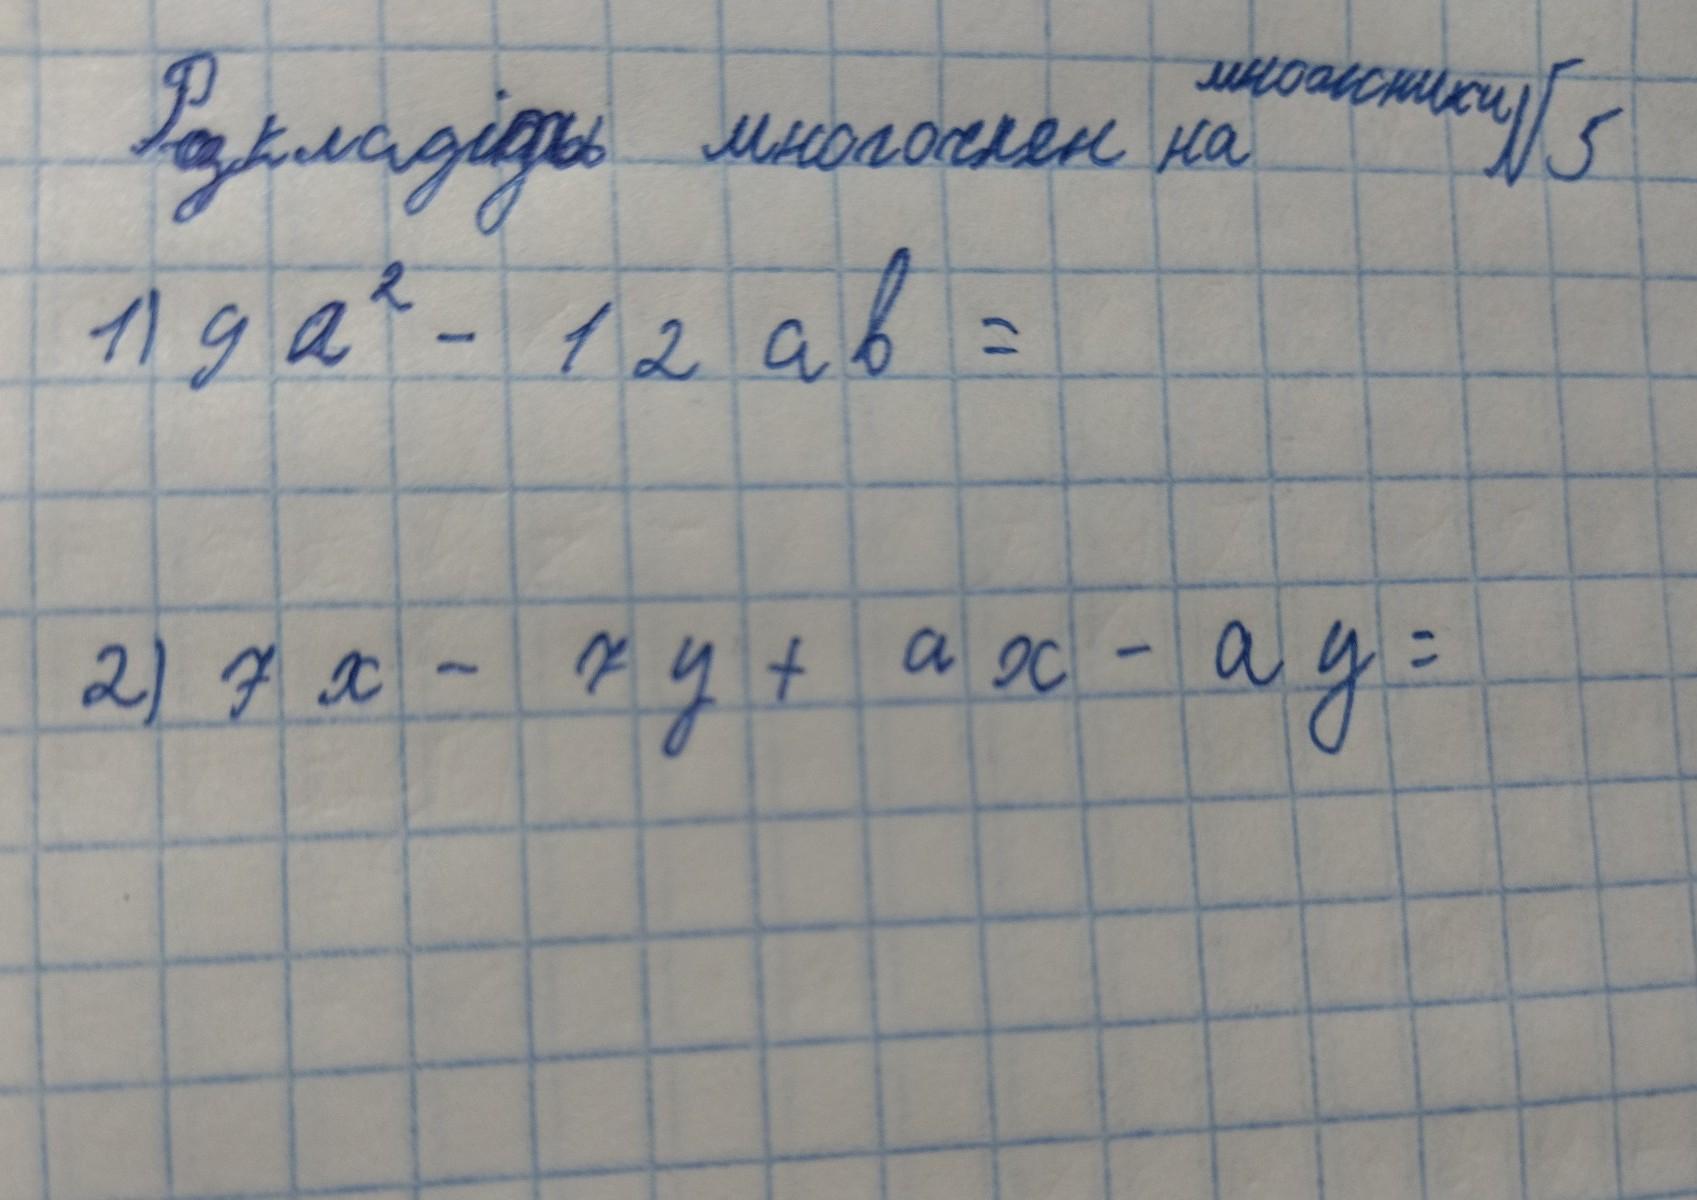 Розкладіть многочлен на множники №5
1) 9a² - 12ab =
2) 7x - 7y + ax - ay =